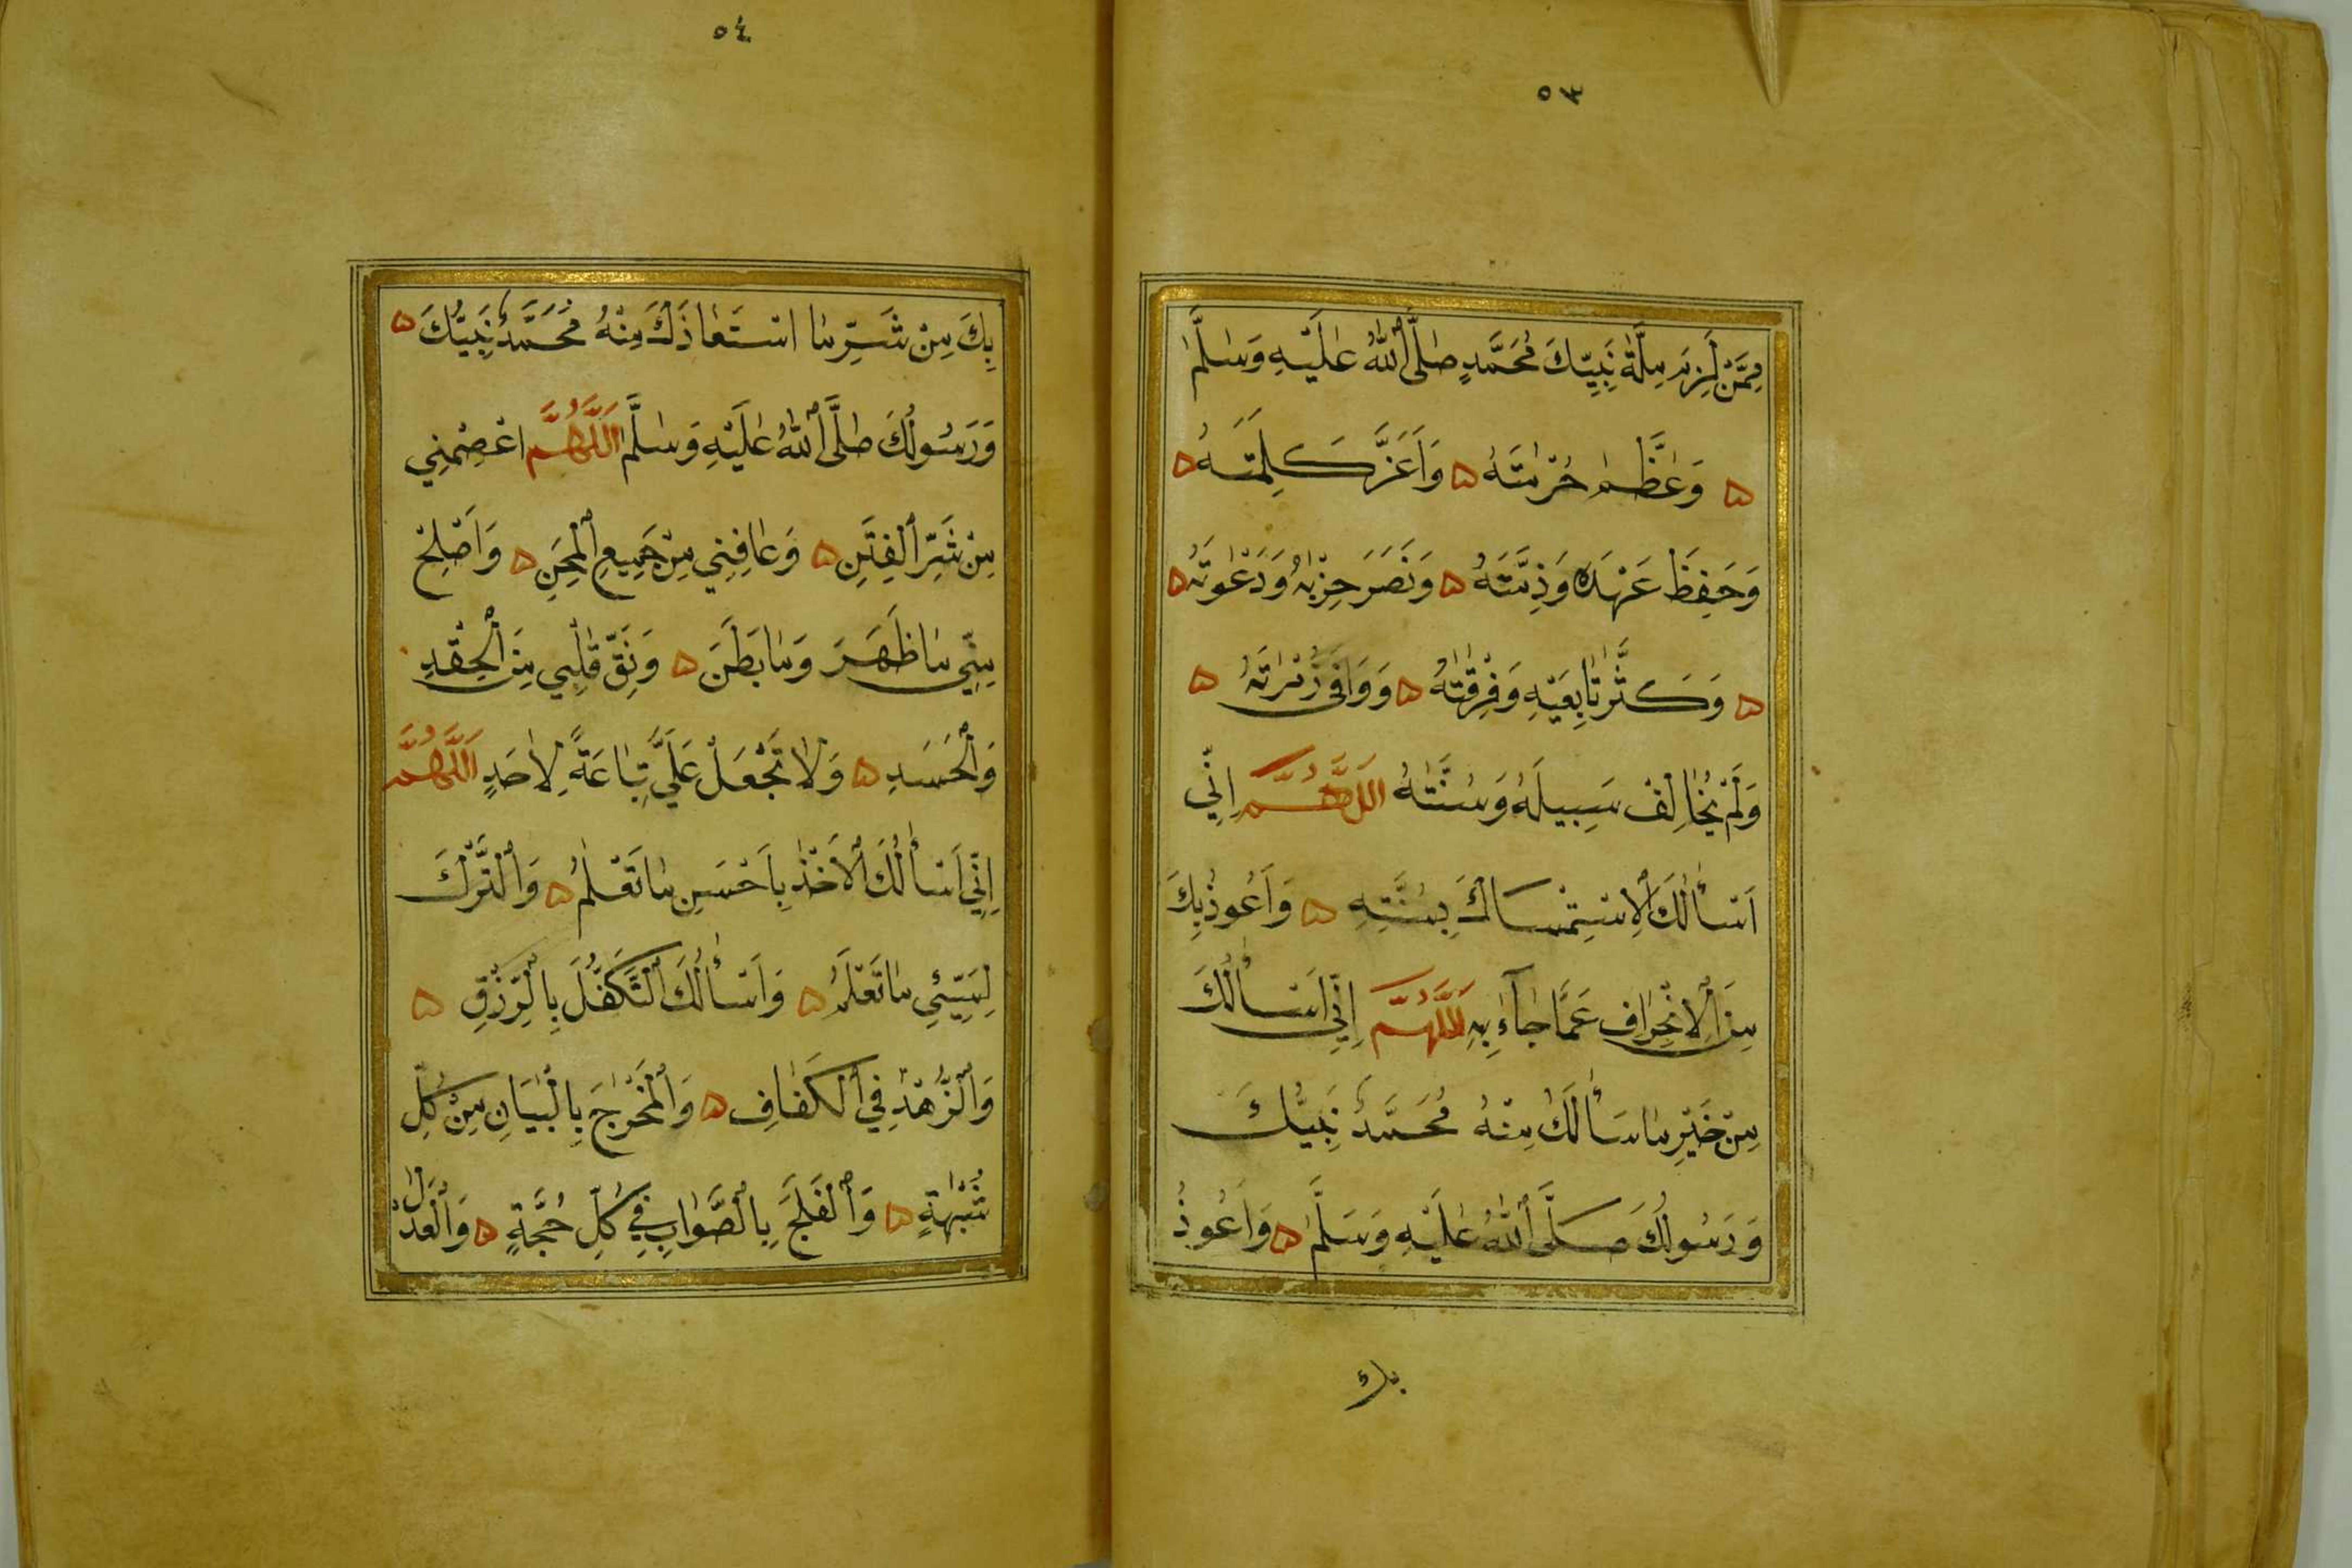 ٥٣
مِمَّنْ لَزِمَ مِلَّةَ نَبِيِّكَ مُحَمَّدٍ صَلَّى اللّٰهُ عَلَيْهِ وَسَلَّمَ
وَعَظَّمَ حُرْمَتَهُ وَاَعَزَّ كَلِمَتَهُ
وَحَفِظَ عَهْدَهُ وَذِمَّتَهُ وَنَصَرَ حِزْبَهُ وَدَعْوَتَهُ
وَكَثَّرَ تَابِعَيْهِ وَفِرْقَتَهُ وَوَافَى زُمْرَتَهُ
وَلَمْ يُخَالِفْ سَبِيلَهُ وَسُنَّتَهُ اَللّٰهُمَّ اِنِّي
اَسْأَلُكَ الْاِسْتِمْسَاكَ بِسُنَّتِهِ وَاَعُوذُ بِكَ
مِنَ الْاِنْحِرَافِ عَمَّا جَآءَ بِهِ اَللّٰهُمَّ اِنِّي اَسْأَلُكَ
مِنْ خَيْرِ مَا سَأَلَكَ مِنْهُ مُحَمَّدٌ نَبِيُّكَ
وَرَسُولُكَ صَلَّى اللّٰهُ عَلَيْهِ وَسَلَّمَ وَاَعُوذُ
بك
٥٤
بِكَ مِنْ شَرِّ مَا اسْتَعَاذَكَ مِنْهُ مُحَمَّدٌ نَبِيُّكَ
وَرَسُولُكَ صَلَّى اللّٰهُ عَلَيْهِ وَسَلَّمَ اَللّٰهُمَّ اعْصِمْنِي
مِنْ شَرِّ الْفِتَنِ وَعَافِنِي مِنْ جَمِيعِ الْمِحَنِ وَاَصْلِحْ
مِنِّي مَا ظَهَرَ وَمَا بَطَنَ وَنَقِّ قَلْبِي مِنَ الْحِقْدِ
وَالْحَسَدِ وَلَا تَجْعَلْ عَلَيَّ تِبَاعَةً لِاَحَدٍ اَللّٰهُمَّ
اِنِّي اَسْأَلُكَ الْاَخْذَ بِاَحْسَنِ مَا تَعْلَمُ وَالتَّرْكَ
لِسَيِّئِ مَا تَعْلَمُ وَاَسْأَلُكَ التَّكَفُّلَ بِالرِّزْقِ
وَالزُّهْدَ فِي الْكَفَافِ وَالْمَخْرَجَ بِالْبَيَانِ مِنْ كُلِّ
شُبْهَةٍ وَالْفَلَجَ بِالصَّوَابِ فِي كُلِّ حُجَّةٍ وَالْعَدْلَ